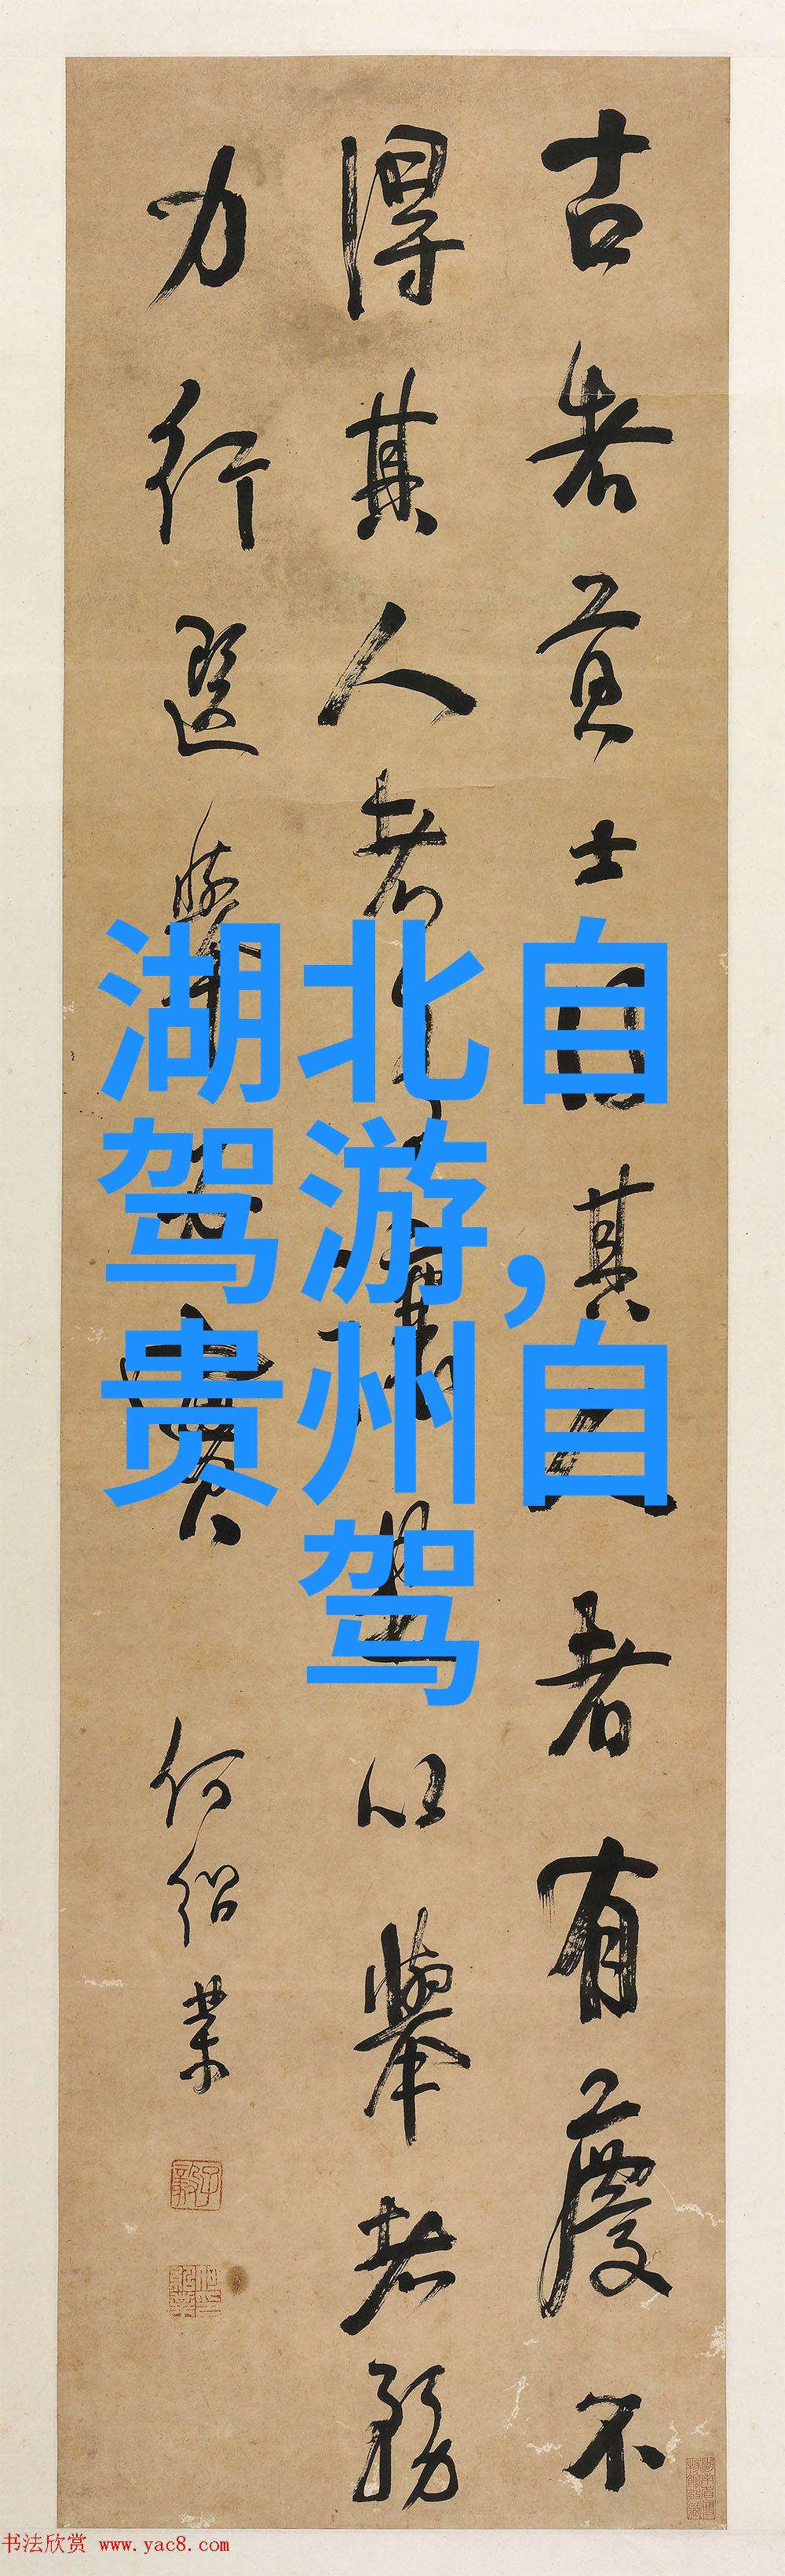 湖北自
驾游,
贵州自
驾
古者貢士其人者有慶不
得其人者以舉者務
力行選舉
何紹業
书法欣赏 www.yac8.com